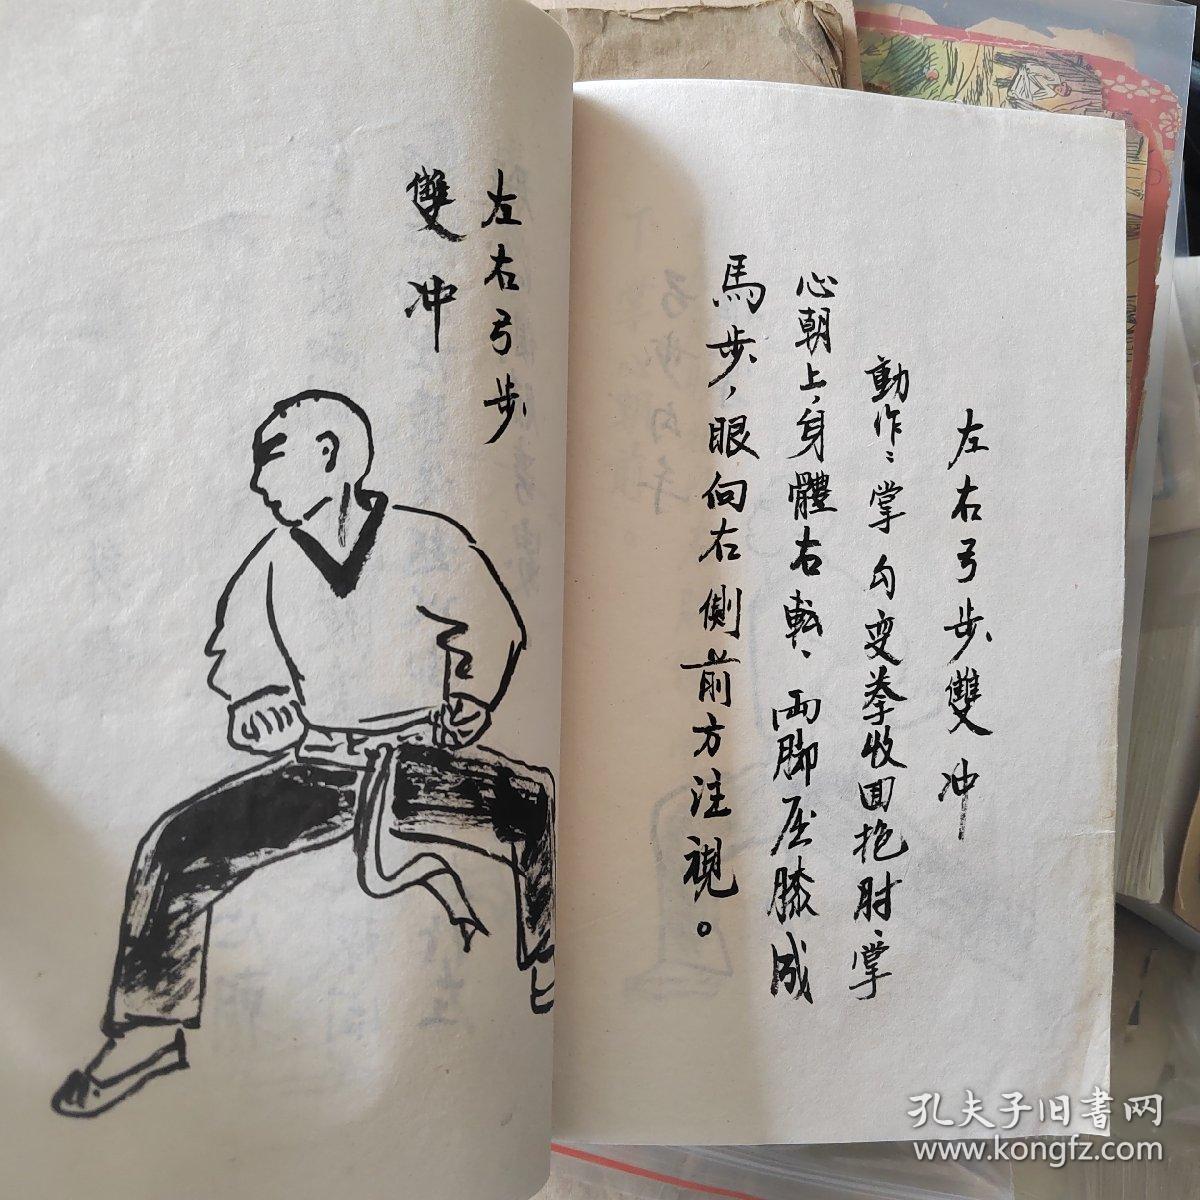 左右弓步雙冲
動作：掌勾变拳收回抱肘、掌
心朝上，身體右転、両脚屈膝成
馬步，眼向右側前方注視。
左右弓步
雙冲
孔夫子旧書网
www.kongfz.com